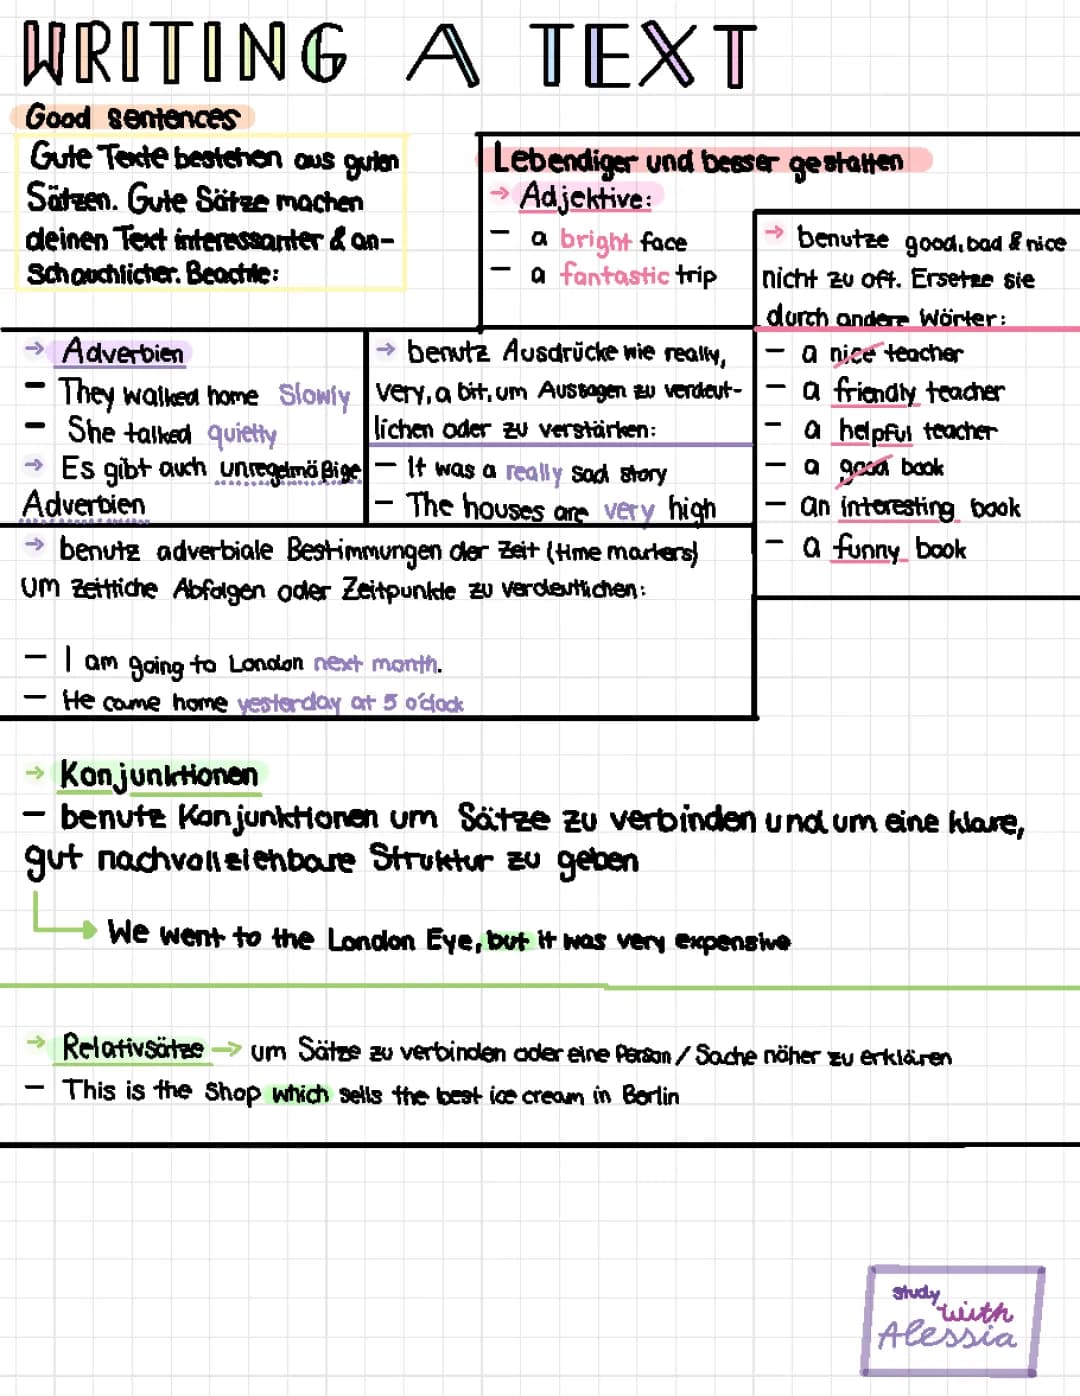 WRITING A TEXT
Good sentences
Gute Texte bestehen aus guten
Sätzen. Gute Sätze machen
deinen Text interessanter & an-
schauchlicher. Beachte:
Lebendiger und besser gestalten
→ Adjektive:
- a bright face
- a fantastic trip
→ benutze good, bad & nice
nicht zu oft. Ersetze sie
durch andere Wörter:
- a nice teacher
- a friendly teacher
- a helpful teacher
- a good book
- an interesting book
- a funny book
→ Adverbien
- They walked home slowly
- She talked quietly
→ Es gibt auch unregelmäßige
Adverbien
→ benutz Ausdrücke wie really,
very, a bit, um Aussagen zu verdeut-
lichen oder zu verstärken:
- It was a really sad story
- The houses are very high
→ benutz adverbiale Bestimmungen der Zeit (time markers)
um zeitliche Abfolgen oder Zeitpunkte zu verdeutlichen:
- I am going to London next month.
- He came home yesterday at 5 o'clock
→ Konjunktionen
- benutz Konjunktionen um Sätze zu verbinden und um eine klare,
gut nachvollziehbare Struktur zu geben
We went to the London Eye, but it was very expensive
→ Relativsätze → um Sätze zu verbinden oder eine Person / Sache näher zu erklären
- This is the Shop which sells the best ice cream in Berlin
study
with
Alessia